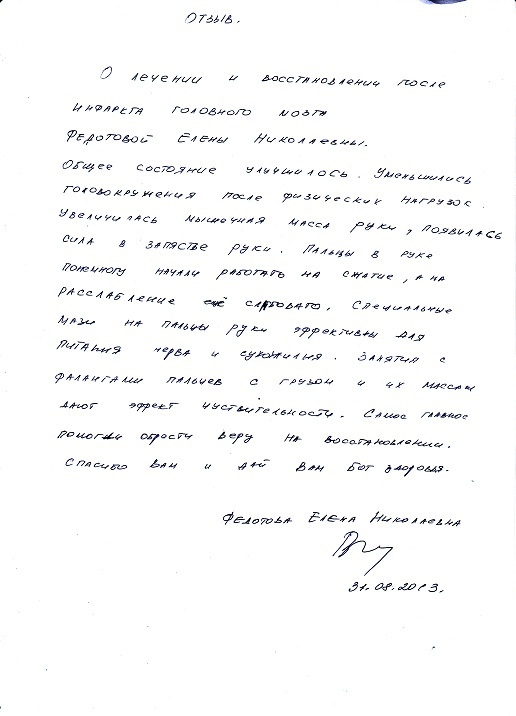 ОТЗЫВ.
О лечении и восстановлении после
инфаркта головного мозга
Федотовой Елены Николаевны.
Общее состояние улучшилось. Уменьшились
головокружения после физических нагрузок.
Увеличилась мышечная масса руки, появилась
сила в запястье руки. Пальцы в руке
понемногу начали работать на сжатие, а на
расслабление ещё слабовато. Специальные
мази на пальцы руки эффективны для
питания нерва и сухожилия. Занятия с
фалангами пальцев с грузом и их массаж
дают эффект чуствительности. Самое главное
помогли обрести веру на восстановлении.
Спасибо Вам и дай Вам Бог здоровья.
Федотова Елена Николаевна
31.08.2013.